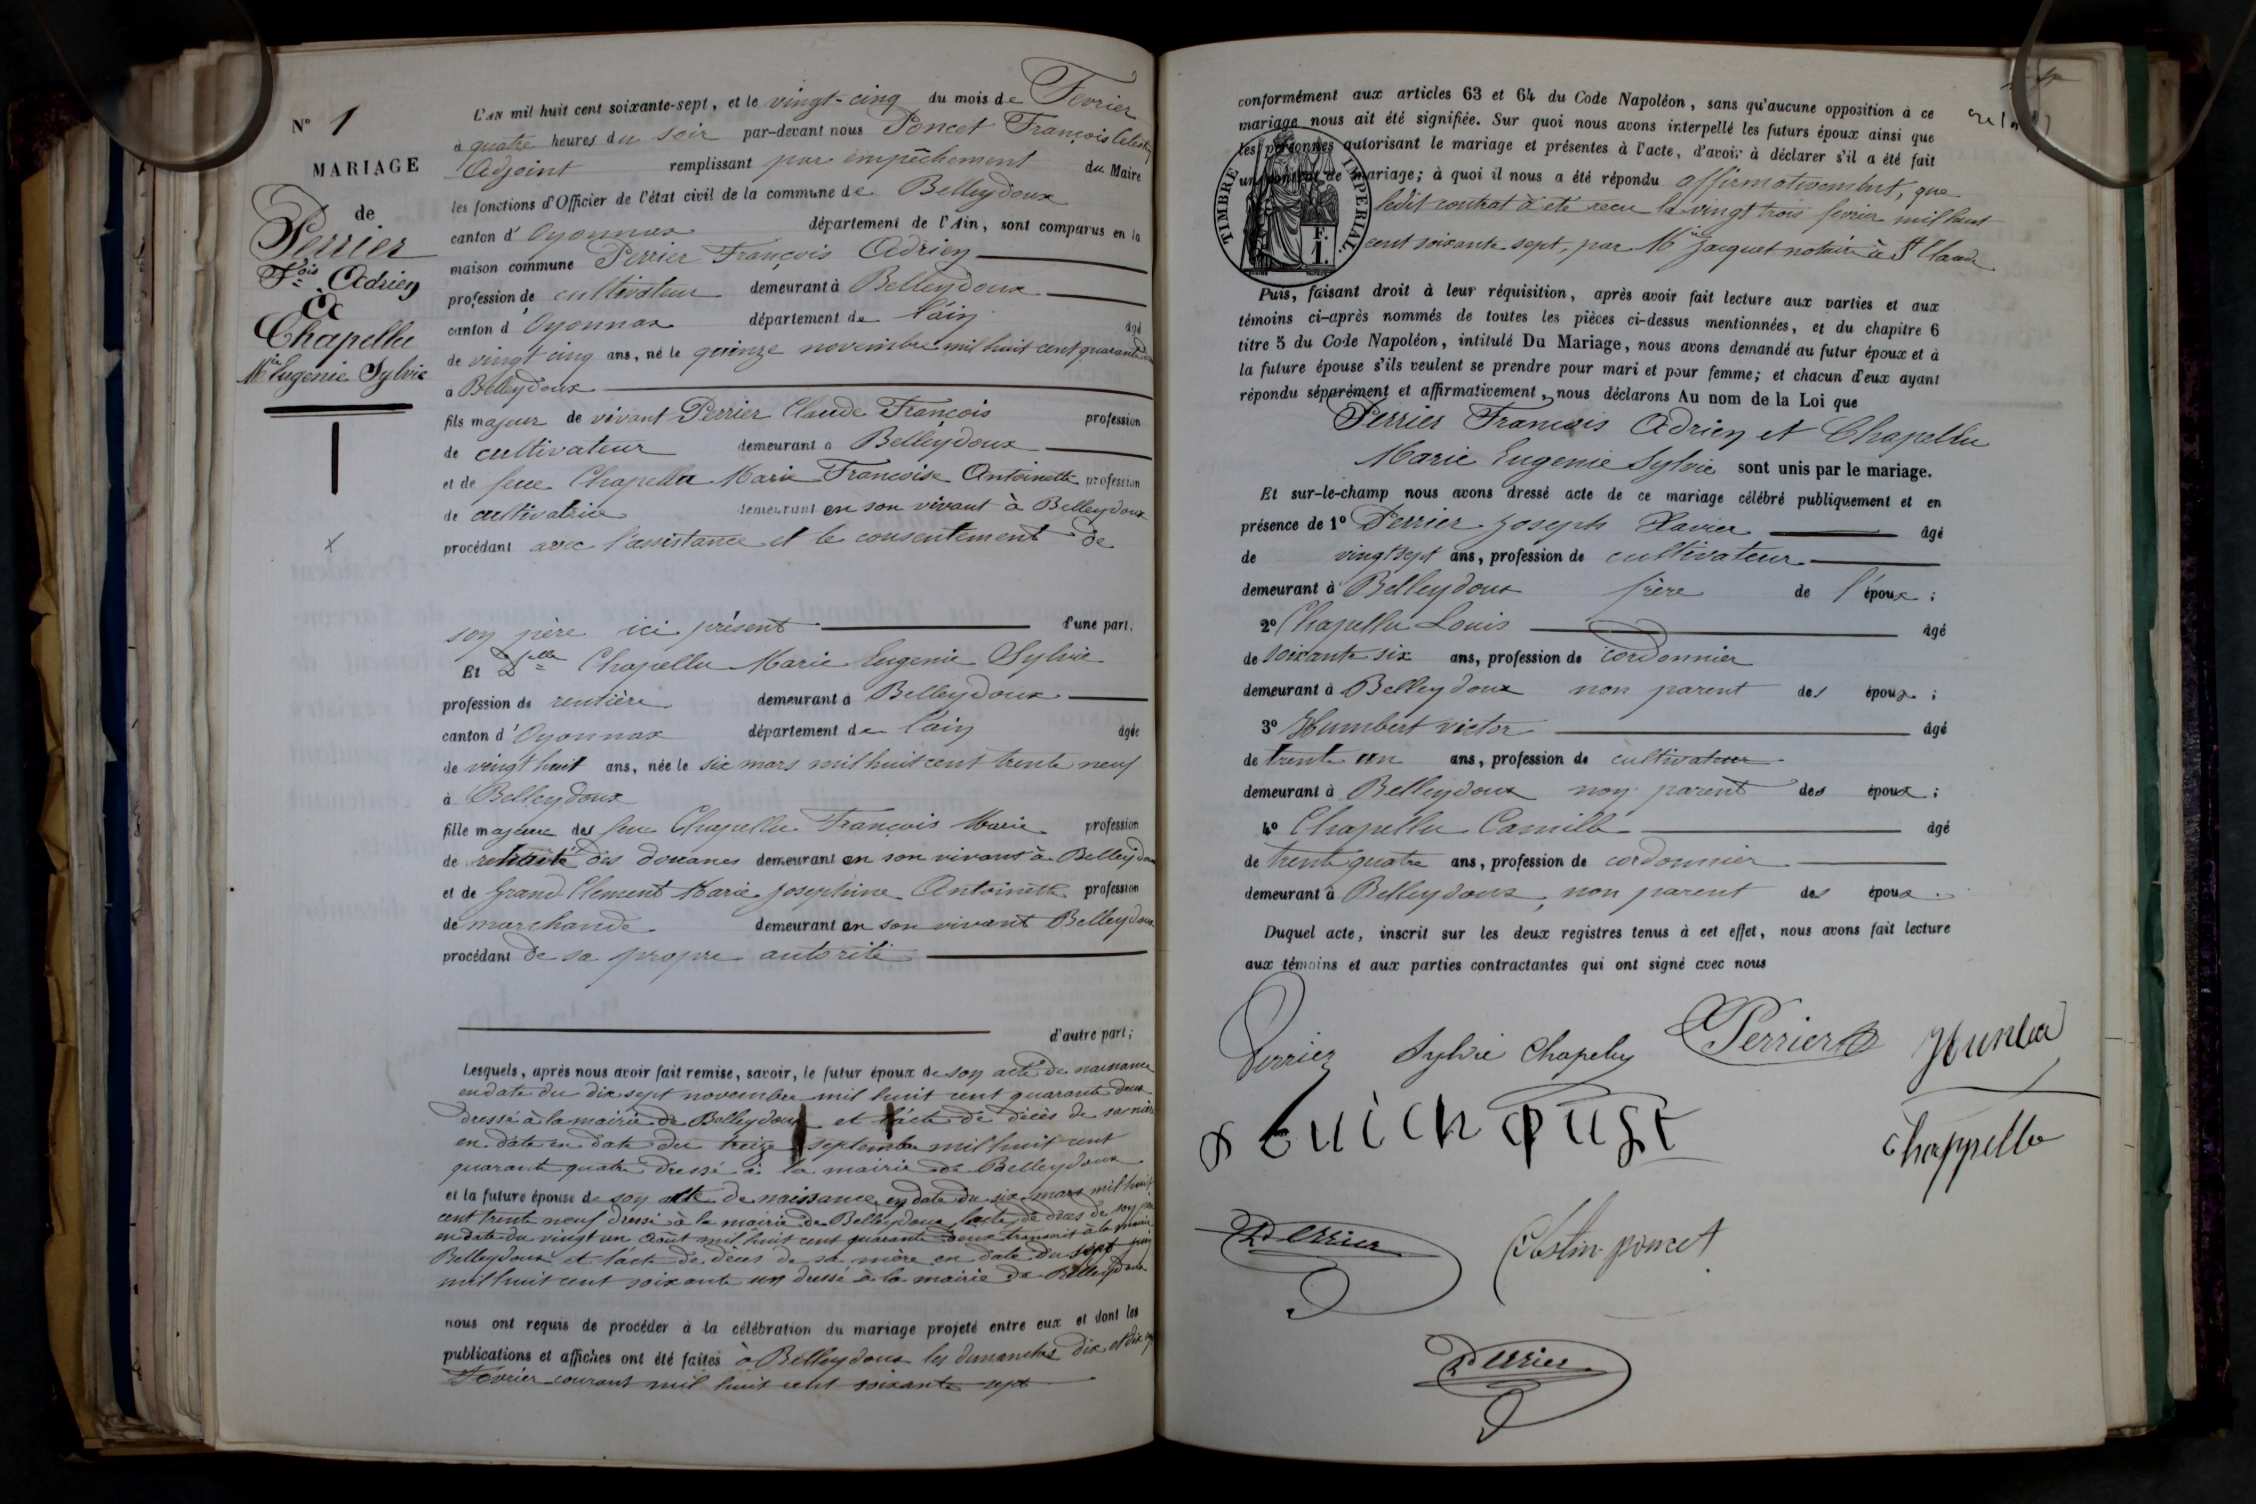 N° 1
MARIAGE
de
Perrier
Fçois Adrien
&
Chapellu
Mie Eugenie Sylvie
L'AN mil huit cent soixante-sept, et le vingt-cinq du mois de Fevrier
à quatre heures du soir par-devant nous Poncet François Célestin
Adjoint remplissant par empêchement du Maire
les fonctions d'Officier de l'état civil de la commune de Belleydoux
canton d'Oyonnax département de l'Ain, sont comparus en la
maison commune Perrier François Adrien
profession de cultivateur demeurant à Belleydoux
canton d'Oyonnax département de l'ain âgé
de vingt cinq ans, né le quinze novembre mil huit cent quarante
à Belleydoux
fils majeur de vivant Perrier Claude François profession
de cultivateur demeurant à Belleydoux
et de feue Chapellu Marie Francoise Antoinette profession
de cultivatrice demeurant en son vivant à Belleydoux
procédant avec l'assistance et le consentement de
son père ici présent d'une part.
Et Delle Chapellu Marie Eugenie Sylvie
profession de rentière demeurant à Belleydoux
canton d'Oyonnax département de l'ain âgée
de vingt huit ans, née le six mars mil huit cent trente neuf
à Belleydoux
fille majeure des feu Chapellu François Marie profession
de retraité des douanes demeurant en son vivant à Belleydoux
et de Grand Clement Marie Josephine Antoinette profession
de marchande demeurant en son vivant Belleydoux
procédant de sa propre autorité
d'autre part;
Lesquels, après nous avoir fait remise, savoir, le futur époux de son acte de naissance
en date du dix sept novembre mil huit cent quarante deux
dressé à la mairie de Belleydoux et l'acte de décès de sa mère
en date en date du treize septembre mil huit cent
quarante quatre dressé à la mairie de Belleydoux
et la future épouse de son acte de naissance en date du six mars mil huit
cent trente neuf dressé à la mairie de Belleydoux l'acte de décès de son père
en date du vingt un aout mil huit cent quarante deux transcrit à la mairie
Belleydoux et l'acte de décès de sa mère en date du sept juin
mil huit cent soixante un dressé à la mairie de Belleydoux
nous ont requis de procéder à la célébration du mariage projeté entre eux et dont les
publications et affiches ont été faites à Belleydoux les dimanches dix et dix sept
Fevrier courant mil huit cent soixante sept
conformément aux articles 63 et 64 du Code Napoléon, sans qu'aucune opposition à ce
mariage nous ait été signifiée. Sur quoi nous avons interpellé les futurs époux ainsi que
les personnes autorisant le mariage et présentes à l'acte, d'avoir à déclarer s'il a été fait
un contrat de mariage; à quoi il nous a été répondu affirmativement, que
ledit contrat a été recu le vingt trois fevrier mil huit
cent soixante sept, par Me Jacquet notaire à St Claude
TIMBRE IMPERIAL.
1 F.
Puis, faisant droit à leur réquisition, après avoir fait lecture aux parties et aux
témoins ci-après nommés de toutes les pièces ci-dessus mentionnées, et du chapitre 6
titre 5 du Code Napoléon, intitulé Du Mariage, nous avons demandé au futur époux et à
la future épouse s'ils veulent se prendre pour mari et pour femme; et chacun d'eux ayant
répondu séparément et affirmativement, nous déclarons Au nom de la Loi que
Perrier Francois Adrien et Chapellu
Marie Eugenie Sylvie sont unis par le mariage.
Et sur-le-champ nous avons dressé acte de ce mariage célébré publiquement et en
présence de 1° Perrier Joseph Xavier âgé
de vingt sept ans, profession de cultivateur
demeurant à Belleydoux frère de l'époux;
2° Chapellu Louis âgé
de soixante six ans, profession de cordonnier
demeurant à Belleydoux non parent des époux;
3° Humbert victor âgé
de trente un ans, profession de cultivateur
demeurant à Belleydoux non parent des époux;
4° Chapellu Camille âgé
de trente quatre ans, profession de cordonnier
demeurant à Belleydoux, non parent des époux.
Duquel acte, inscrit sur les deux registres tenus à cet effet, nous avons fait lecture
aux témoins et aux parties contractantes qui ont signé avec nous
Perrier Sylvie Chapelu Perrier
Chappellu
Perrier Célestin poncet
Perrier